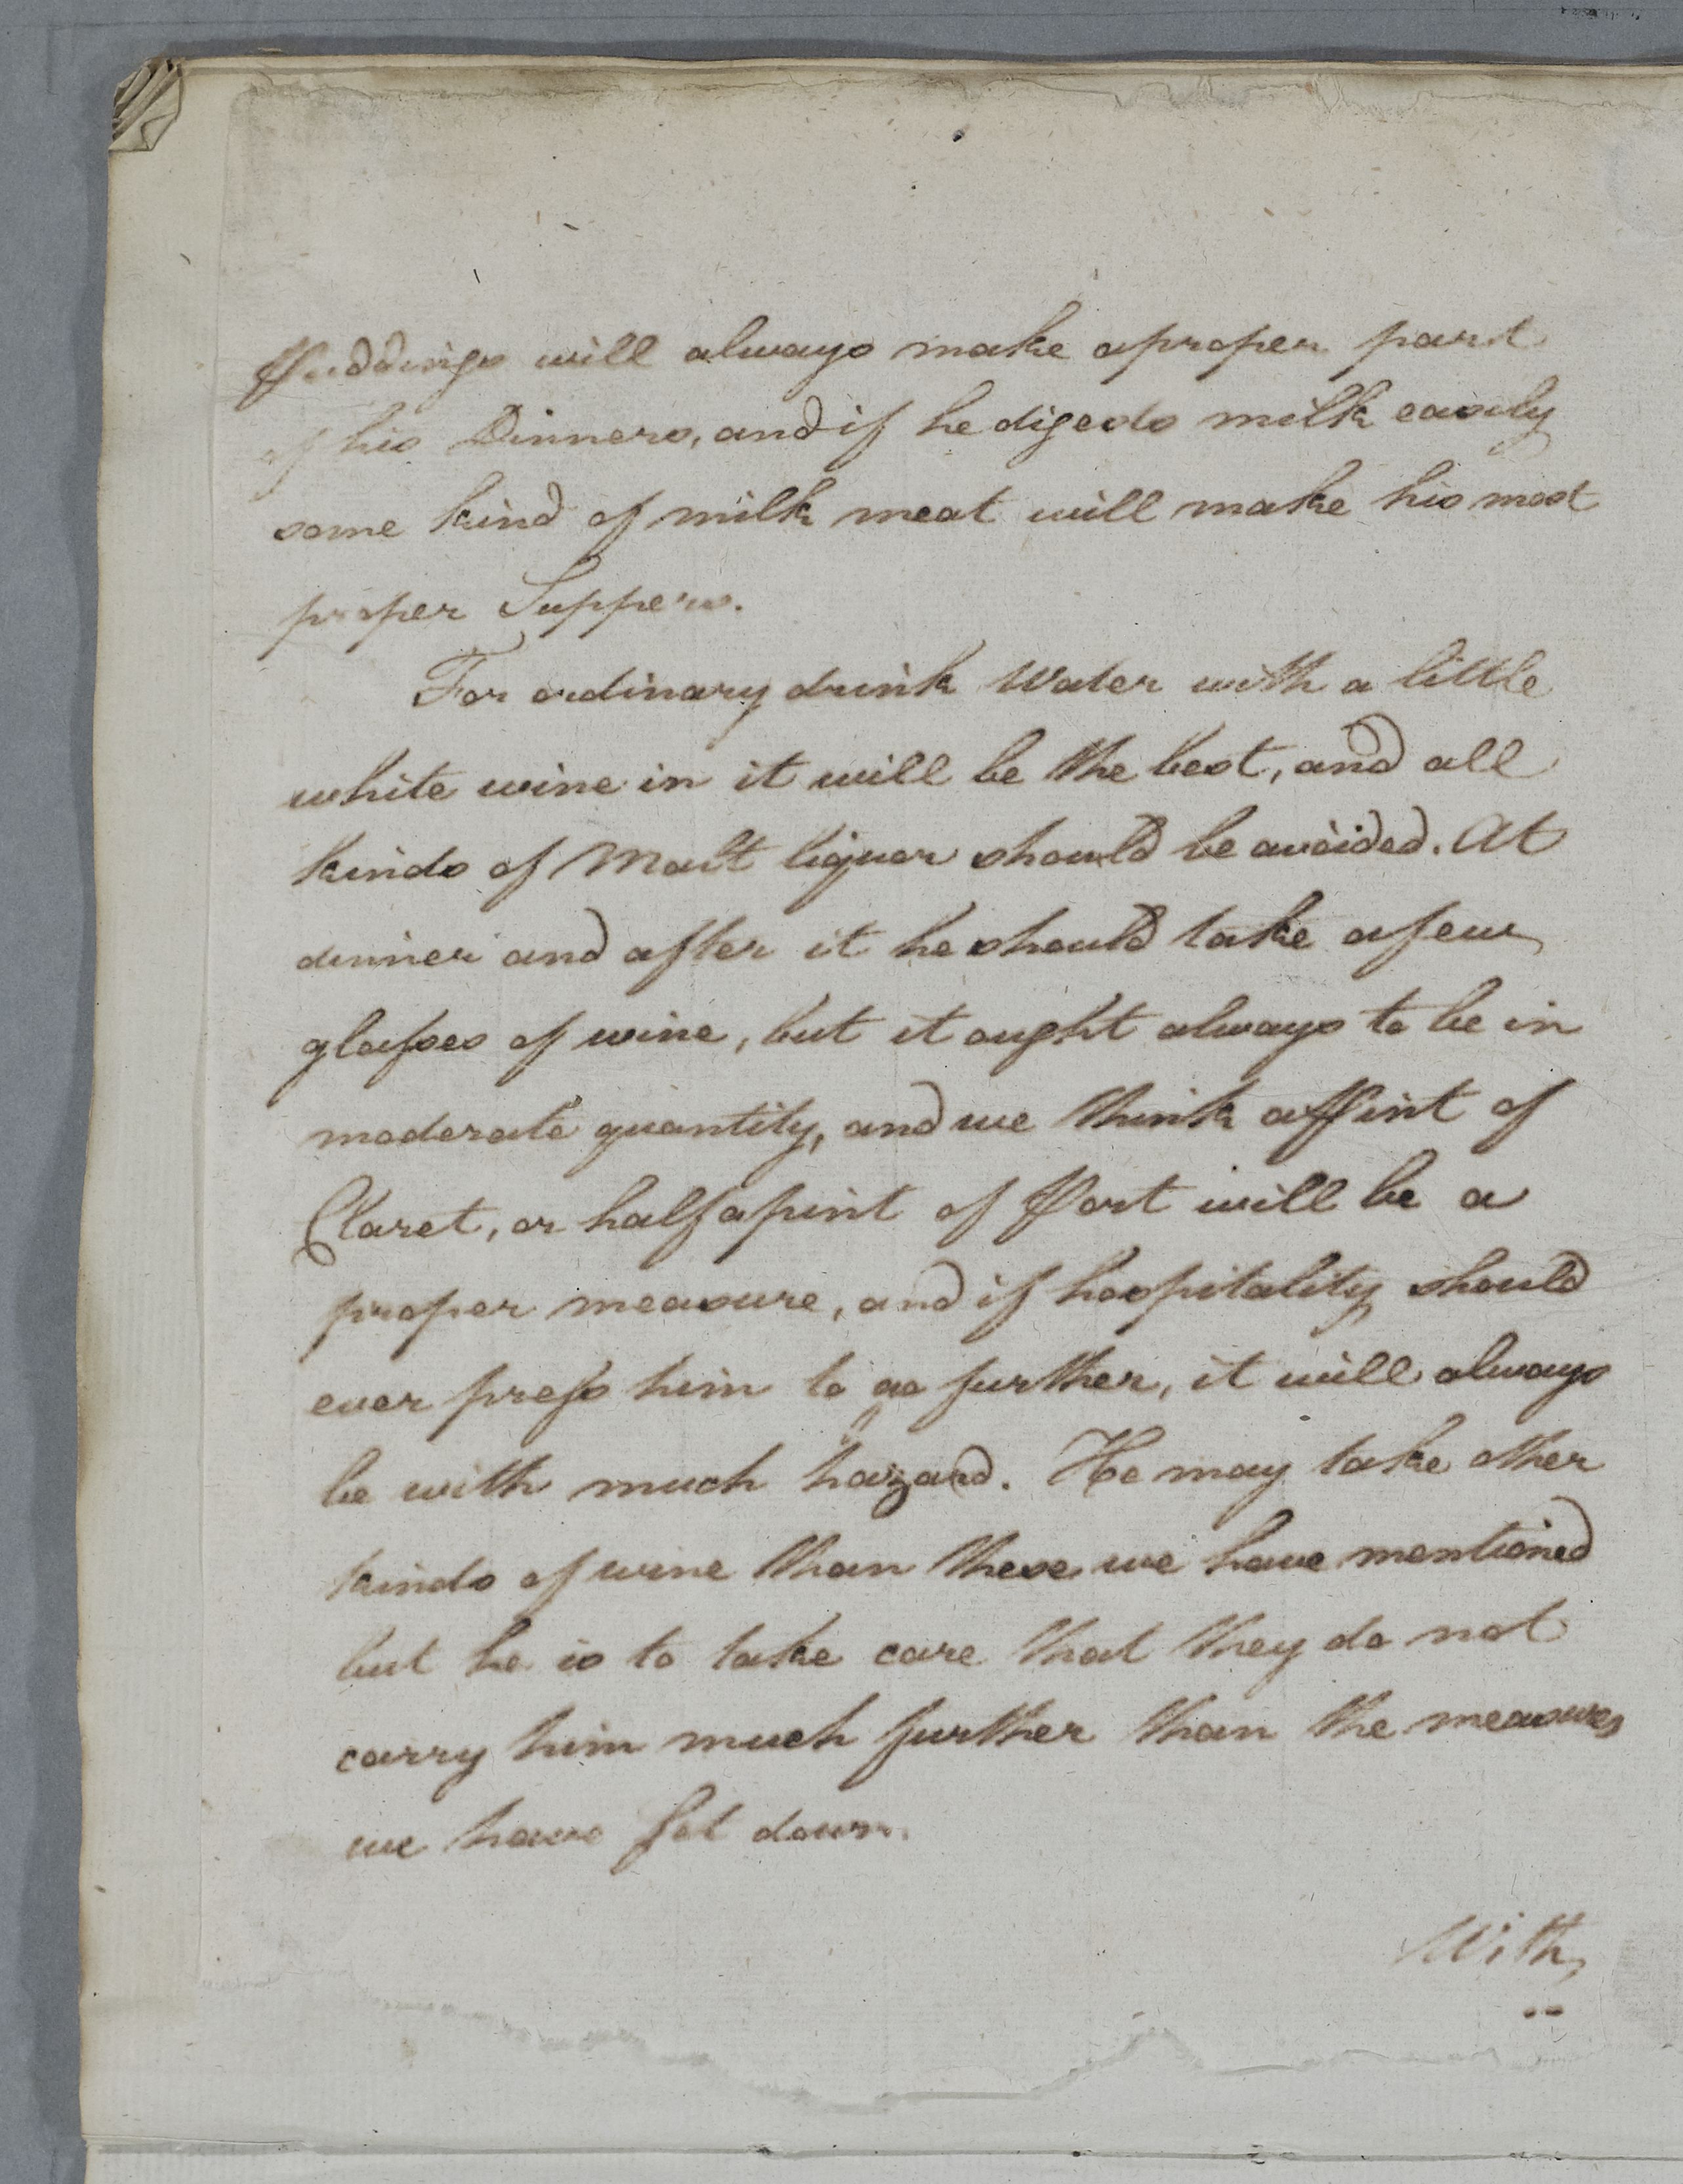 Puddings will always make a proper part
of his Dinners, and if he digests milk easily
some kind of milk meat will make his most
proper Suppers.
For ordinary drink Water with a little
white wine in it will be the best, and all
kinds of Malt liquor should be avoided. At
dinner and after it he should take a few
glasses of wine, but it ought always to be in
moderate quantity, and we think a Pint of
Claret, or half a pint of Port will be a
proper measure, and if hospitality should
ever press him to go further, it will always
be with much hazard. He may take other
kinds of wine than these we have mentioned
but he is to take care that they do not
carry him much further than the measures
we have set down.
With